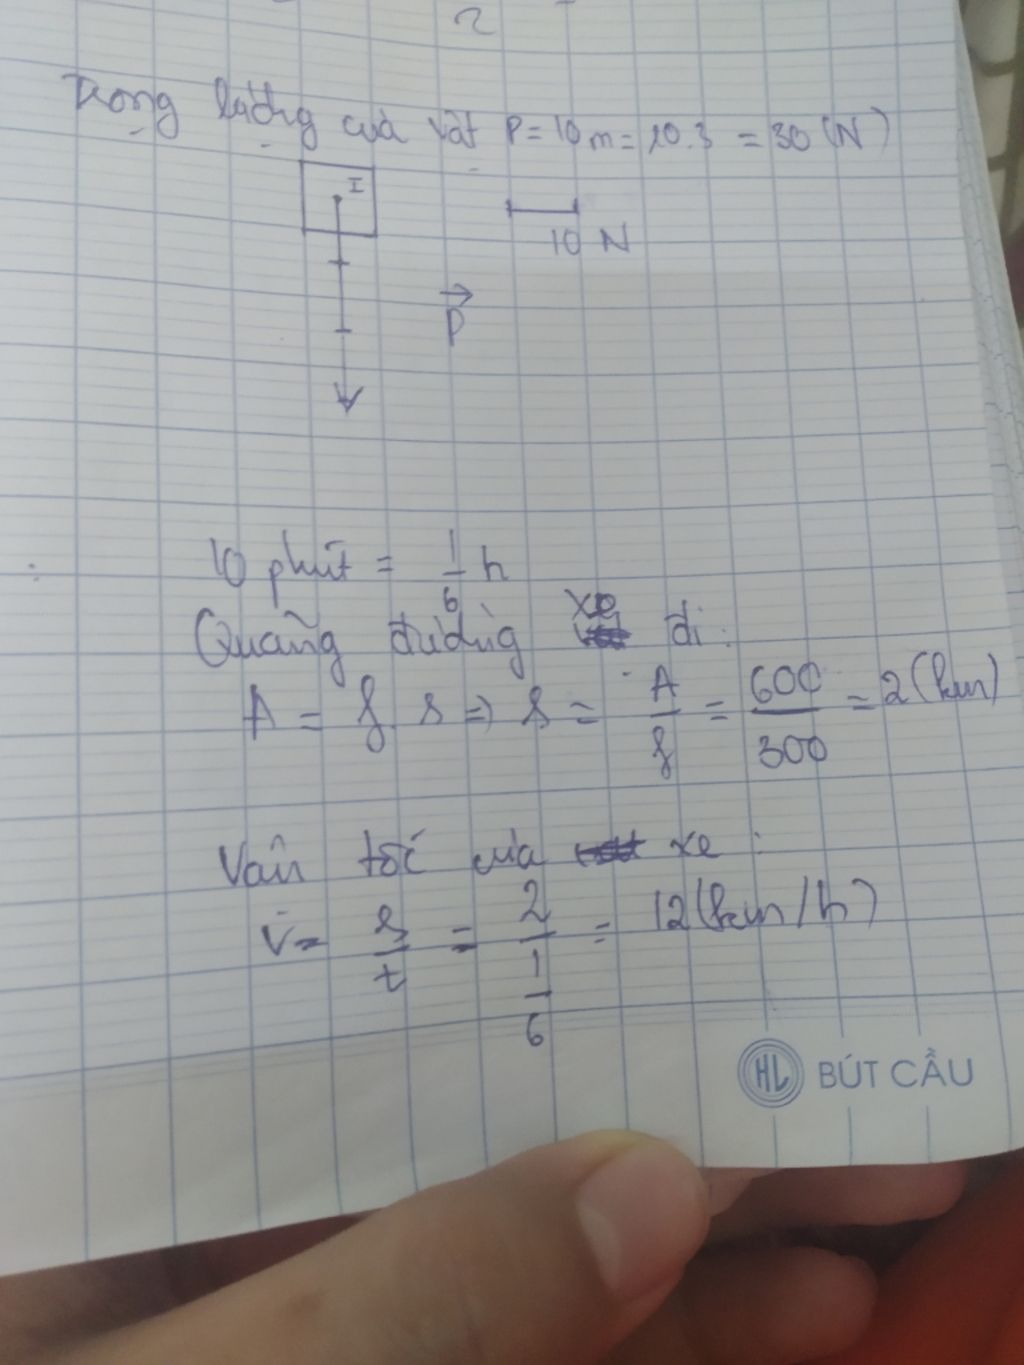 2
Trọng lượng của vật P = 10m = 10.3 = 30 (N)
I
10 N
P
: 10 phút = 1/6 h
Quãng đường xe đi:
A = f. s => s = A/f = 600/300 = 2 (km)
Vân tốc của xe :
v = s/t = 2/(1/6) = 12 (km/h)
HL BÚT CẦU